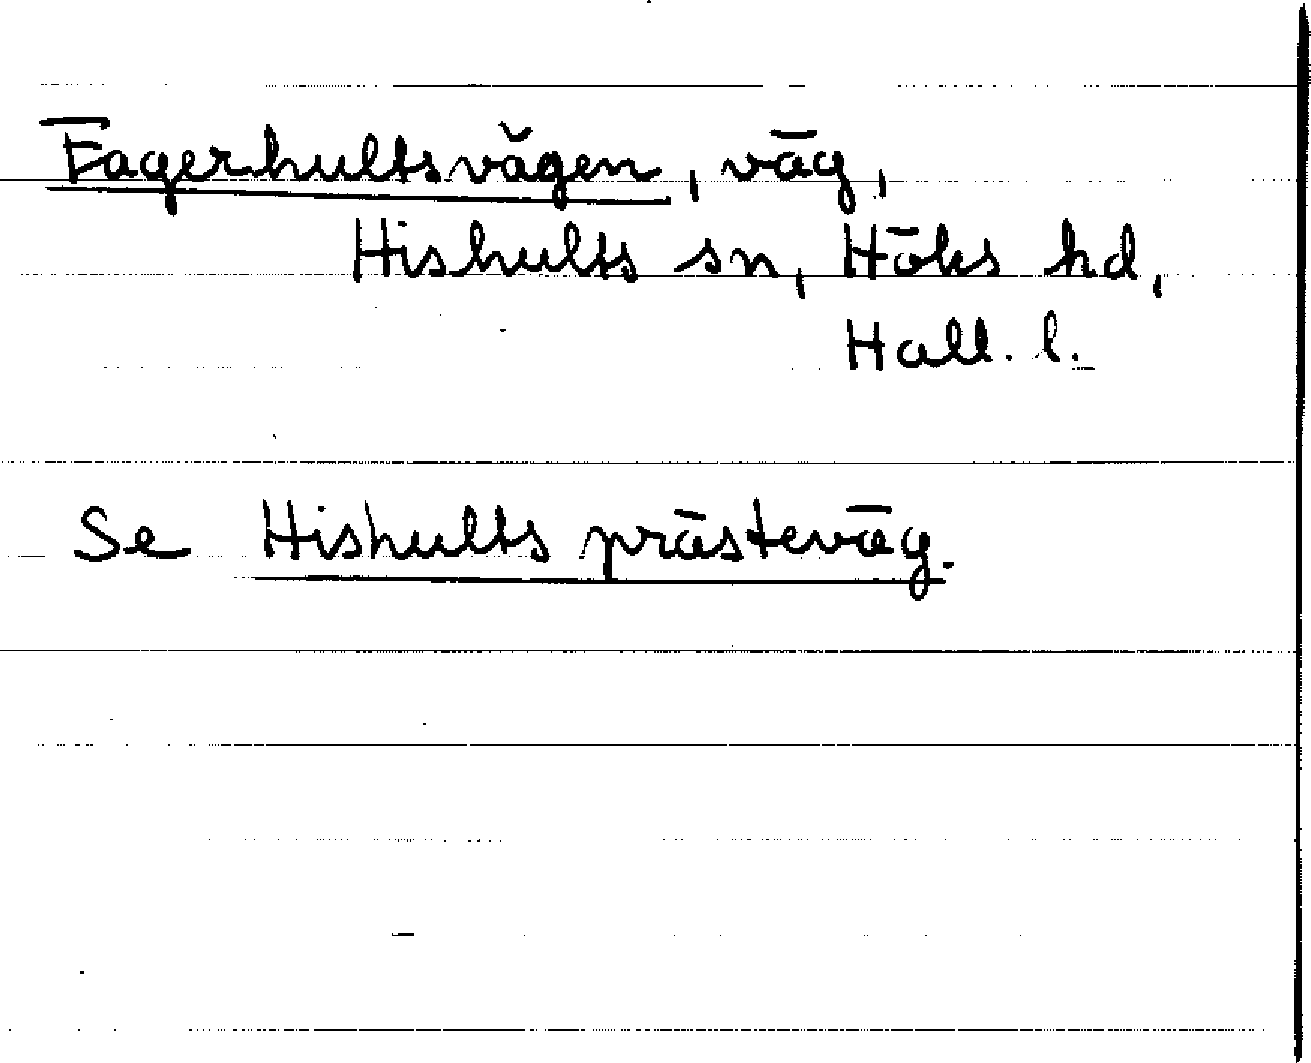 Fagerhultsvägen, väg,
Hishults sn, Höks hd,
Hall. l.
Se Hishults prästeväg.